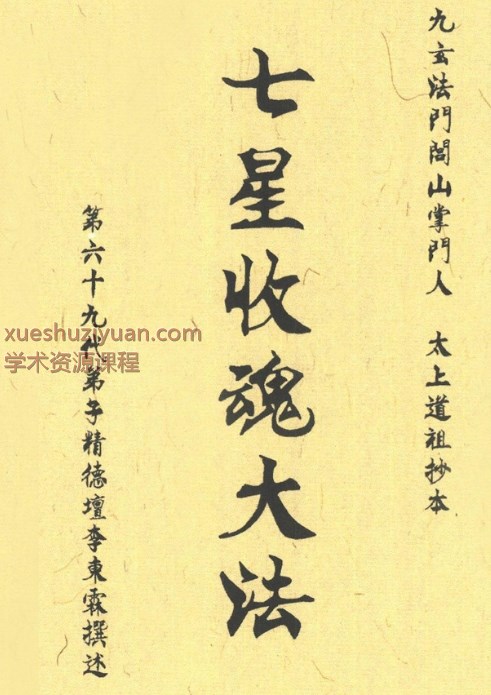 九玄法門閭山掌門人 太上道祖抄本
七星收魂大法
第六十九代弟子精德壇李東霖撰述
xueshuziyuan.com
学术资源课程